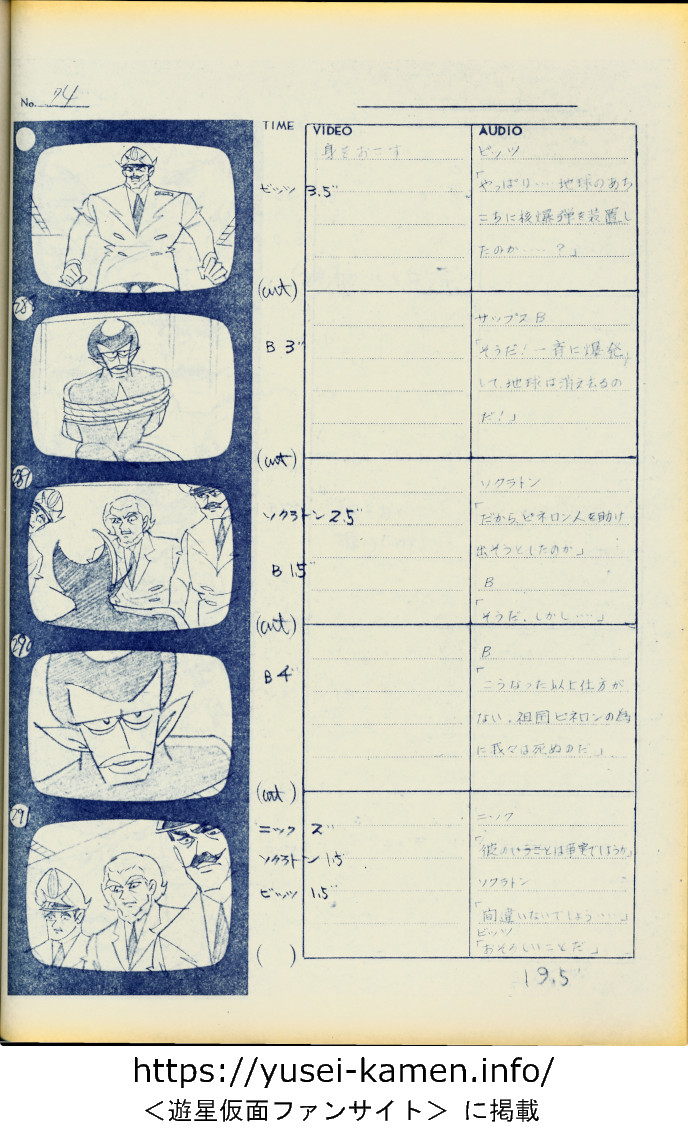 No. 74
TIME VIDEO AUDIO
身をおこす
ピッツ
ピッツ 3.5"
「やっぱり…地球のあち
こちに核爆弾を装置し
たのか……?」
(cut)
288
サップス B
B 3"
「そうだ!一斉に爆発
して、地球は消え去るの
だ!」
(cut)
289
ソクラトン
ソクラトン 2.5"
「だから、ピネロン人を助け
出そうとしたのか」
B
B 1.5"
「そうだ、しかし……」
(cut)
290
B
B 4"
「こうなった以上仕方が
ない、祖国ピネロンの為
に我々は死ぬのだ」
(cut)
291
ニック
ニック 2"
「彼のいうことは事実でしょうか」
ソクラトン 1.5"
ソクラトン
ピッツ 1.5"
「間違いないでしょう…」
ピッツ
「おそろしいことだ」
( )
19.5"
https://yusei-kamen.info/
<遊星仮面ファンサイト> に掲載